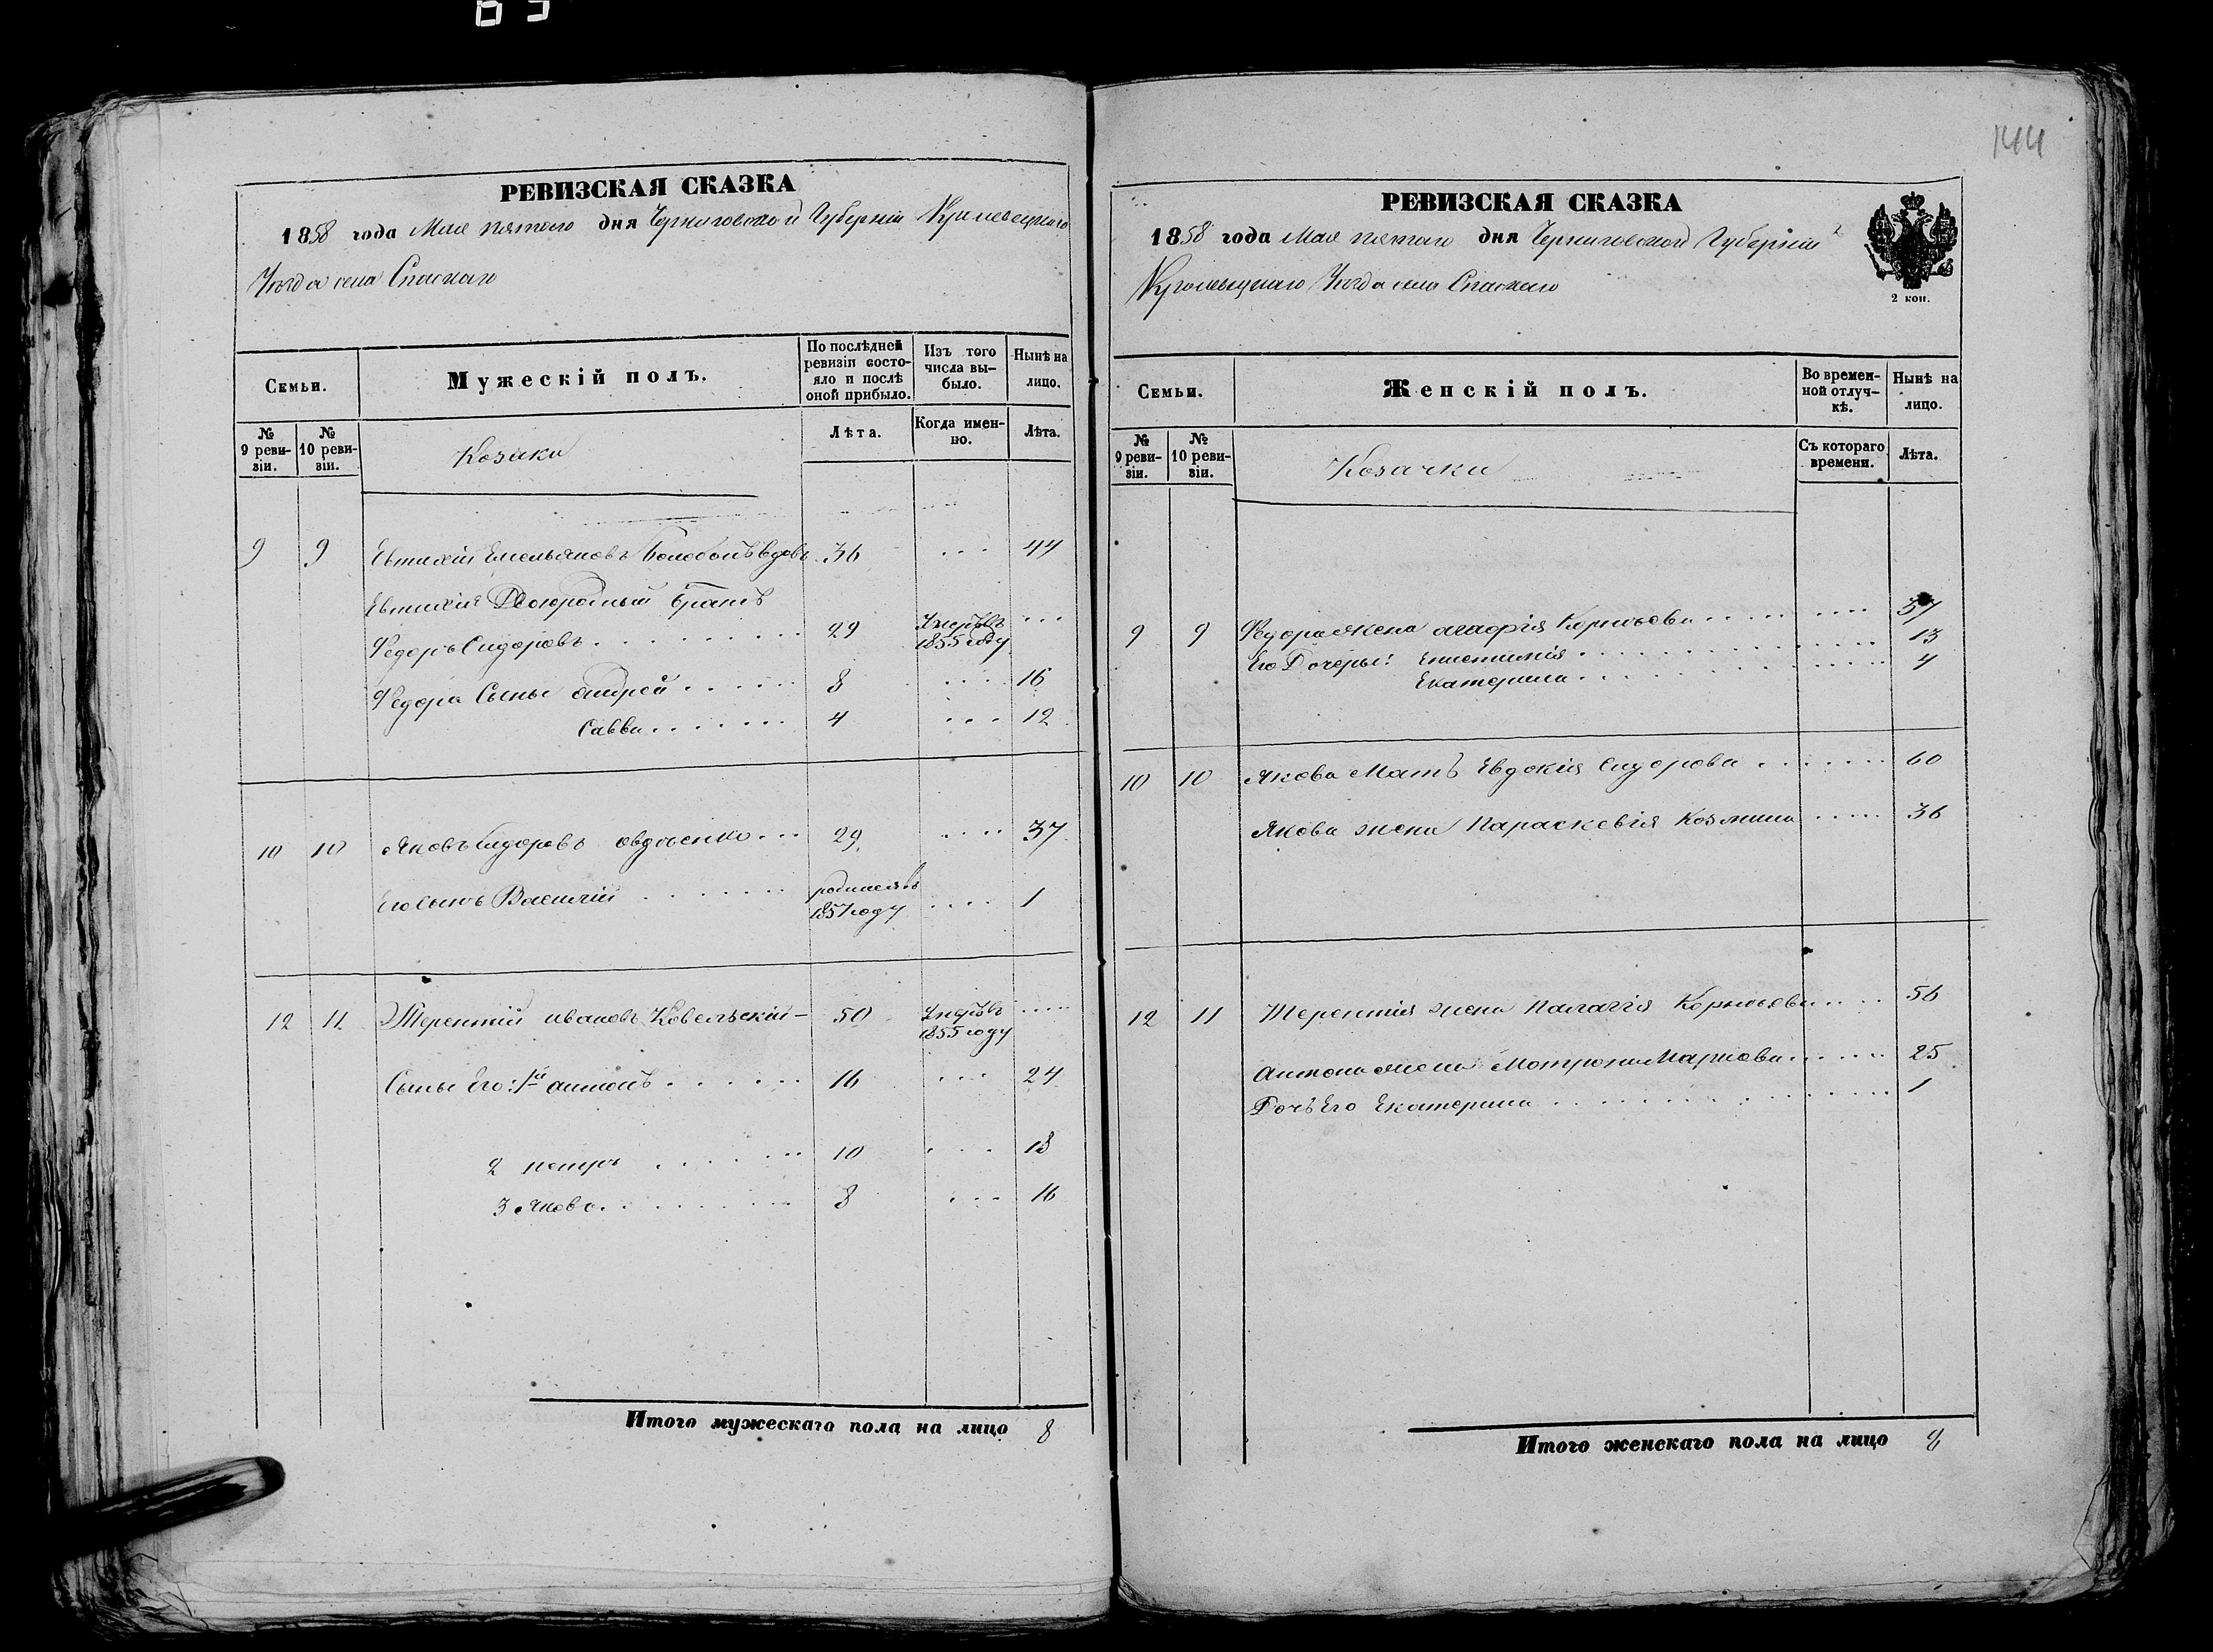 144
РЕВИЗСКАЯ СКАЗКА
1858 года Мая пятого дня Черниговской Губерніи Кролевецкаго
Уѣзда села Спаскаго
Семьи.
Мужескій полъ.
По послѣдней ревизіи состояло и послѣ оной прибыло.
Изъ того числа выбыло.
Нынѣ на лицо.
№ 9 ревизіи.
№ 10 ревизіи.
Козаки
Лѣта.
Когда именно.
Лѣта.
9 9 Евтихій Емельяновъ вдовъ 36 . . . 44
Евтихія Двоюродный братъ
Федоръ Сидоровъ . . . 29 Умеръ въ 1855 году . . .
Федора Сыны Андрей . . . 8 . . . 16
Савва . . . 4 . . . 12
10 10 Яковъ Сидоровъ Овдѣенко . . . 29 . . . 37
Его сынъ Василій . . . родился въ 1857 году . . . 1
12 11 Терентій Ивановъ Ковельскій - 50 Умеръ въ 1855 году . . .
Сыны Его: 1й Антонъ . . . 16 . . . 24
2 Петръ . . . 10 . . . 18
3 Яковъ . . . 8 . . . 16
Итого мужескаго пола на лицо 8
РЕВИЗСКАЯ СКАЗКА
1858 года Мая пятого дня Черниговской Губерніи
Кролевецкаго Уѣзда села Спаскаго
2 коп.
Семьи.
Женскій полъ.
Во временной отлучкѣ.
Нынѣ на лицо.
№ 9 ревизіи.
№ 10 ревизіи.
Козачки
Съ котораго времени.
Лѣта.
9 9 Федора жена Агафія Корнѣева . . . 37
Его Дочеры: Епистимія . . . 13
Екатерина . . . 4
10 10 Якова Мать Евдокія Сидорова . . . 60
Якова жена Параскевія Козмина . . . 36
12 11 Терентія жена Палагія Корнѣева . . . 56
Антона жена Мотрона Маркова . . . 25
Дочь Его Екатерина . . . 1
Итого женскаго пола на лицо 8